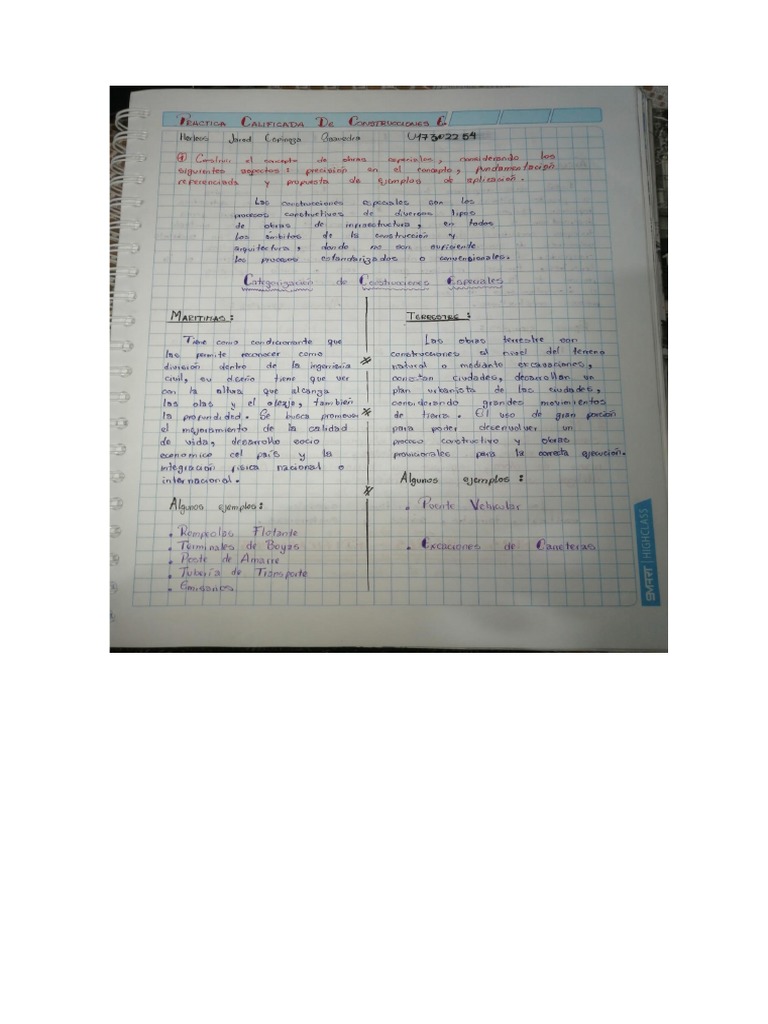 PRACTICA CALIFICADA DE CONSTRUCCIONES E.
Jarod Espinoza Saavedra U17302254
① Construir el concepto de obras especiales, considerando los
siguientes aspectos: precisión en el concepto, fundamentación
referenciada y propuesta de ejemplos de aplicación.
Las construcciones especiales son los
procesos constructivos de diversos tipos
de obras de infraestructura, en todos
los ámbitos de la construcción y
arquitectura, donde no son suficiente
los procesos estandarizados o convencionales.
Categorización de Construcciones Especiales
MARITIMAS:
Tiene como condicionante que
las permite reconocer como
división dentro de la ingeniería
civil, su diseño tiene que ver
con la altura que alcanza
las olas y el oleaje, también
la profundidad. Se busca promover
el mejoramiento de la calidad
de vida, desarrollo socio
economico del país y la
integración física nacional o
internacional.
Algunos ejemplos:
• Rompeolas Flotante
• Terminales de Boyas
• Poste de Amarre
• Tubería de Transporte
• Emisarios
TERRESTRE:
Las obras terrestre son
construcciones al nivel del terreno
natural o mediante excavaciones,
conectan ciudades, desarrollan un
plan urbanista de las ciudades,
considerando grandes movimientos
de tierra. El uso de gran porción
para poder desenvolver un
proceso constructivo y obras
provicionales para la correcta ejecución.
Algunos ejemplos:
• Puente Vehicular
• Excaciones de Carreteras
SMART | HIGHCLASS